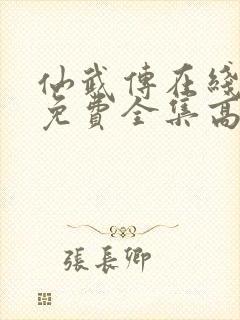 仙武傳在綫
免費全集高
張長卿